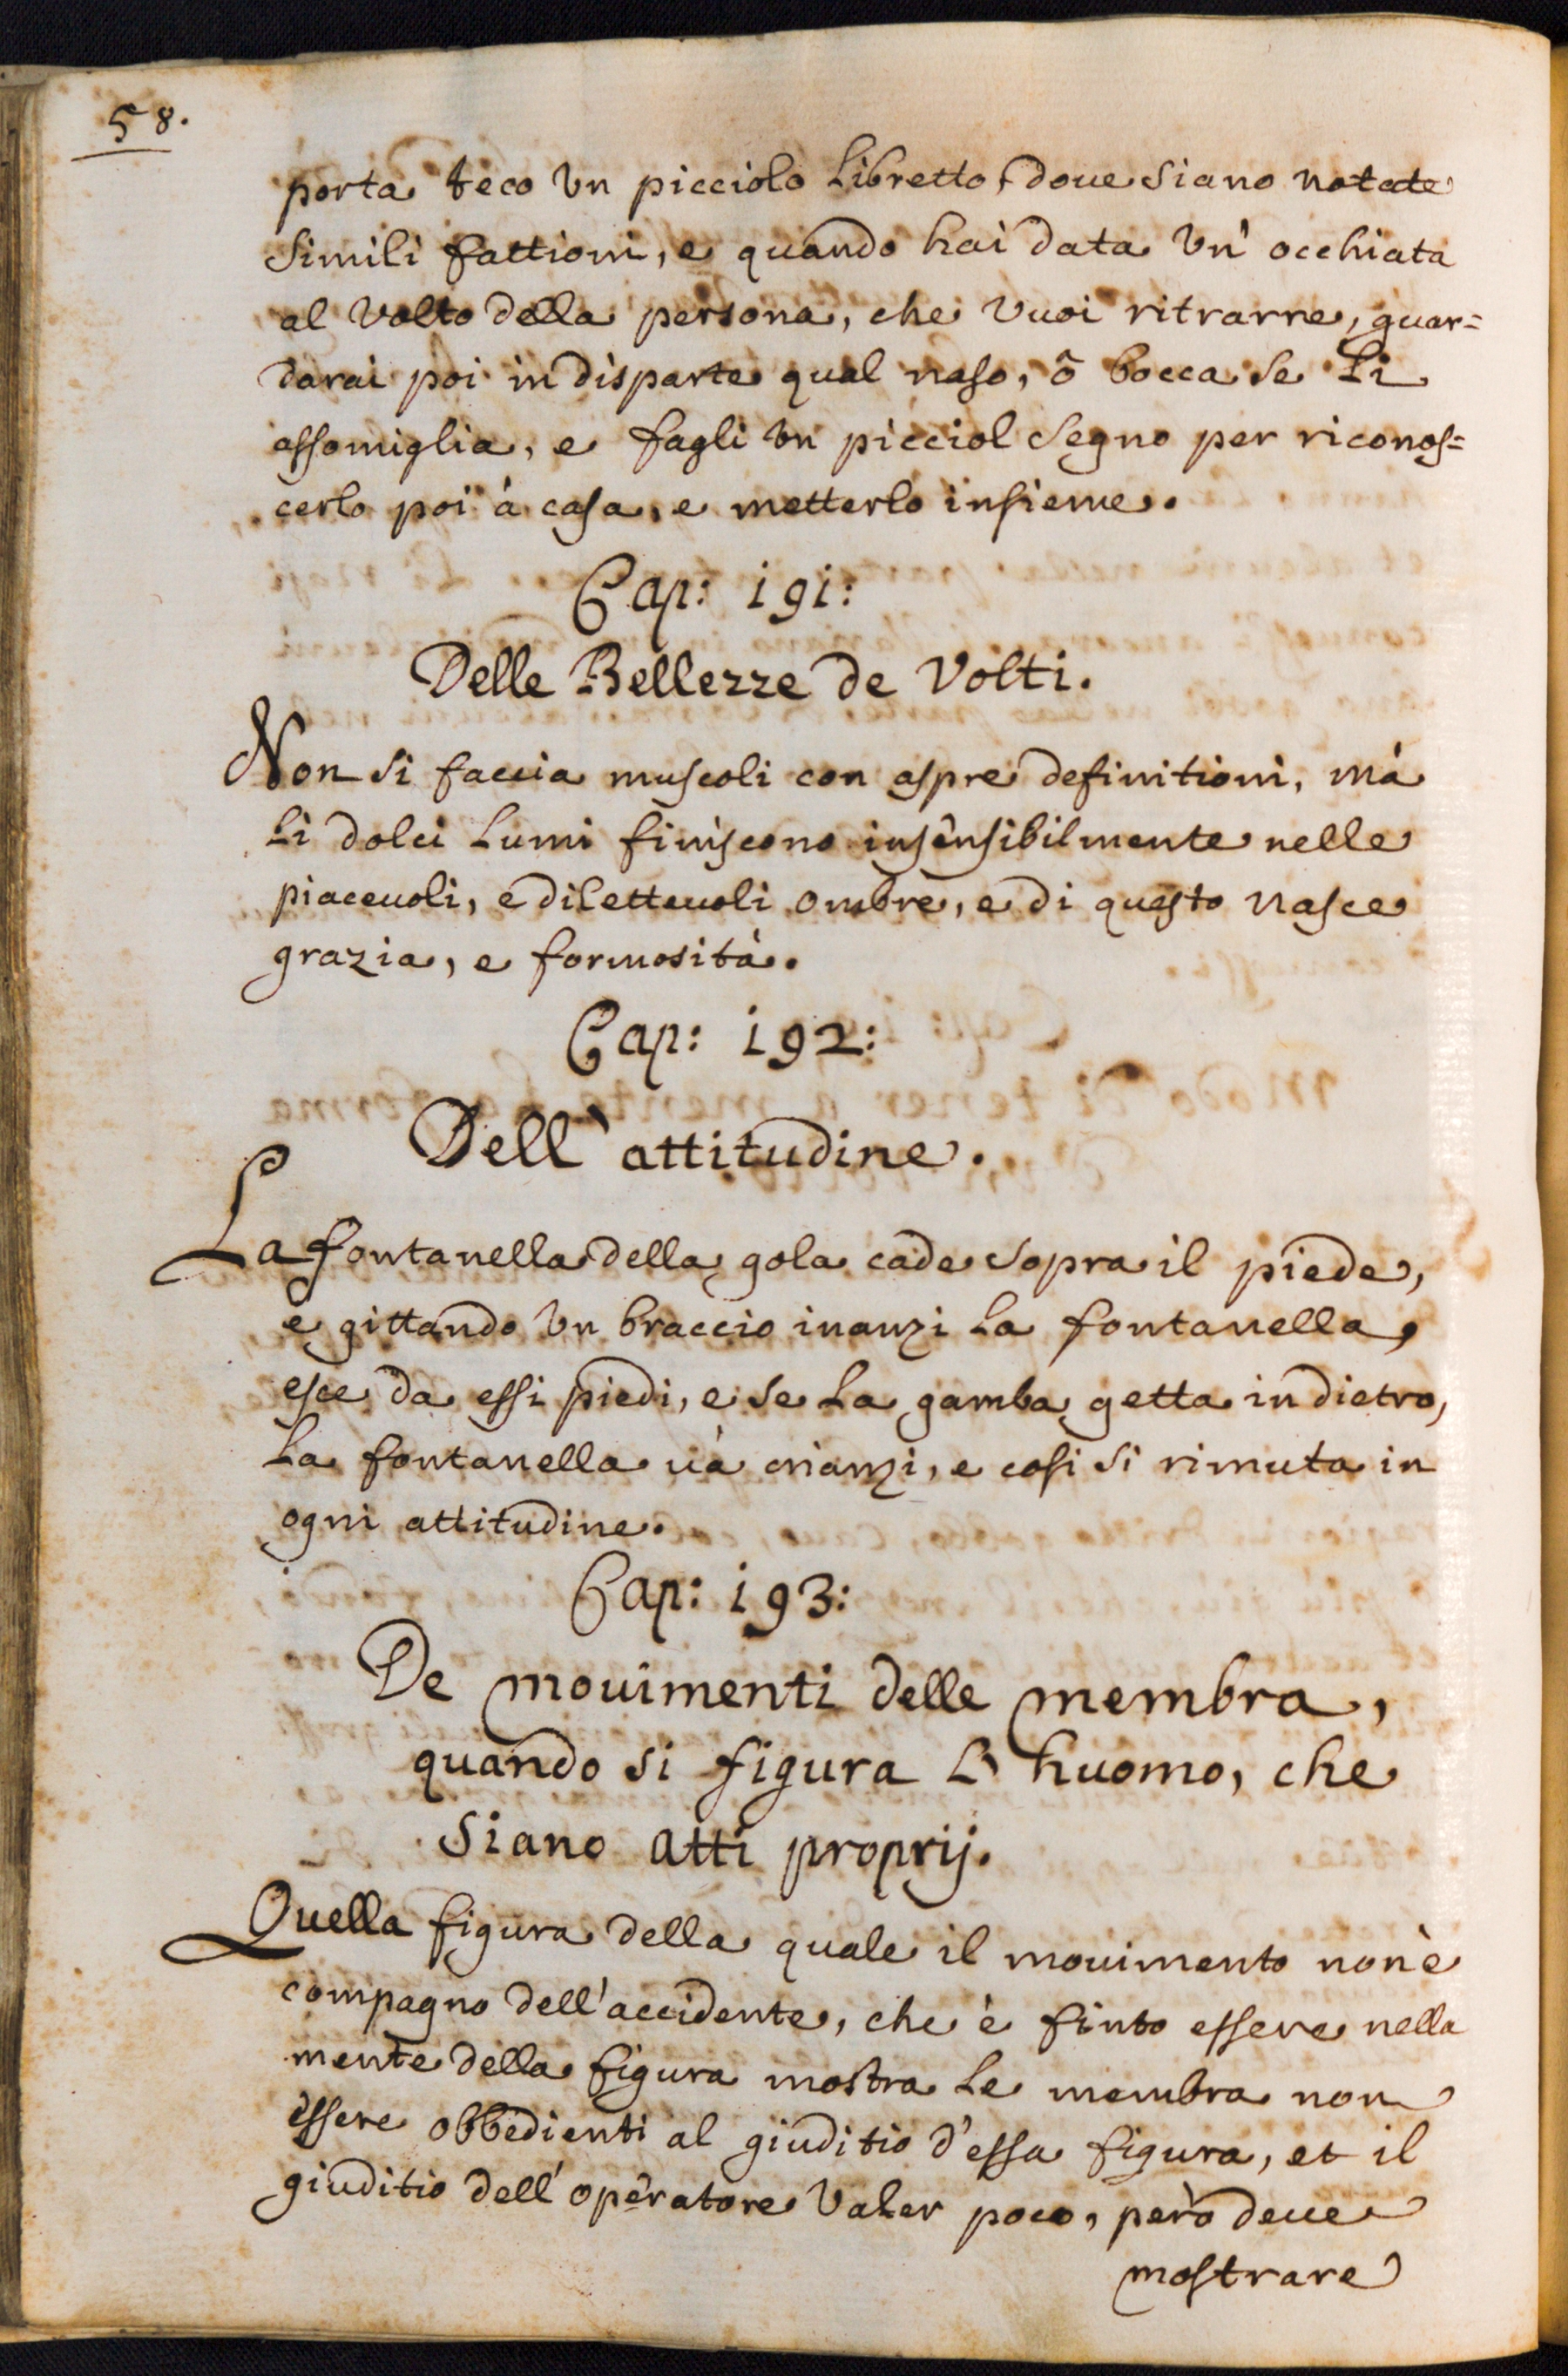 58.
porta teco Vn picciolo Libretto, doue siano notate
simili fattioni, e quando hai data Vn' occhiata
al Volto della persona, che Vuoi ritrarre, guar=
darai poi in disparte qual naso, ò bocca se Li
assomiglia, e fagli Vn picciol segno per riconos=
cerlo poi à casa, e metterlo insieme.
Cap: 191:
Delle Bellezze de Volti.
Non si faccia muscoli con aspre definitioni, mà
Li dolci Lumi finiscono insensibilmente nelle
piaceuoli, e diletteuoli ombre, e di questo nasce
grazia, e formosità.
Cap: 192:
Dell' attitudine.
La fontanella della gola cade sopra il piede,
e gittando Vn braccio inanzi La fontanella,
esce da essi piedi, e se La gamba getta in dietro,
La fontanella uà inanzi, e cosi si rimuta in
ogni attitudine.
Cap: 193:
De mouimenti delle membra,
quando si figura L' huomo, che
siano atti proprij.
Quella figura della quale il mouimento non è
compagno dell' accidente, che è finto essere nella
mente della figura mostra Le membra non
essere obbedienti al giuditio d'essa figura, et il
giuditio dell' operatore Valer poco, però deue
mostrare